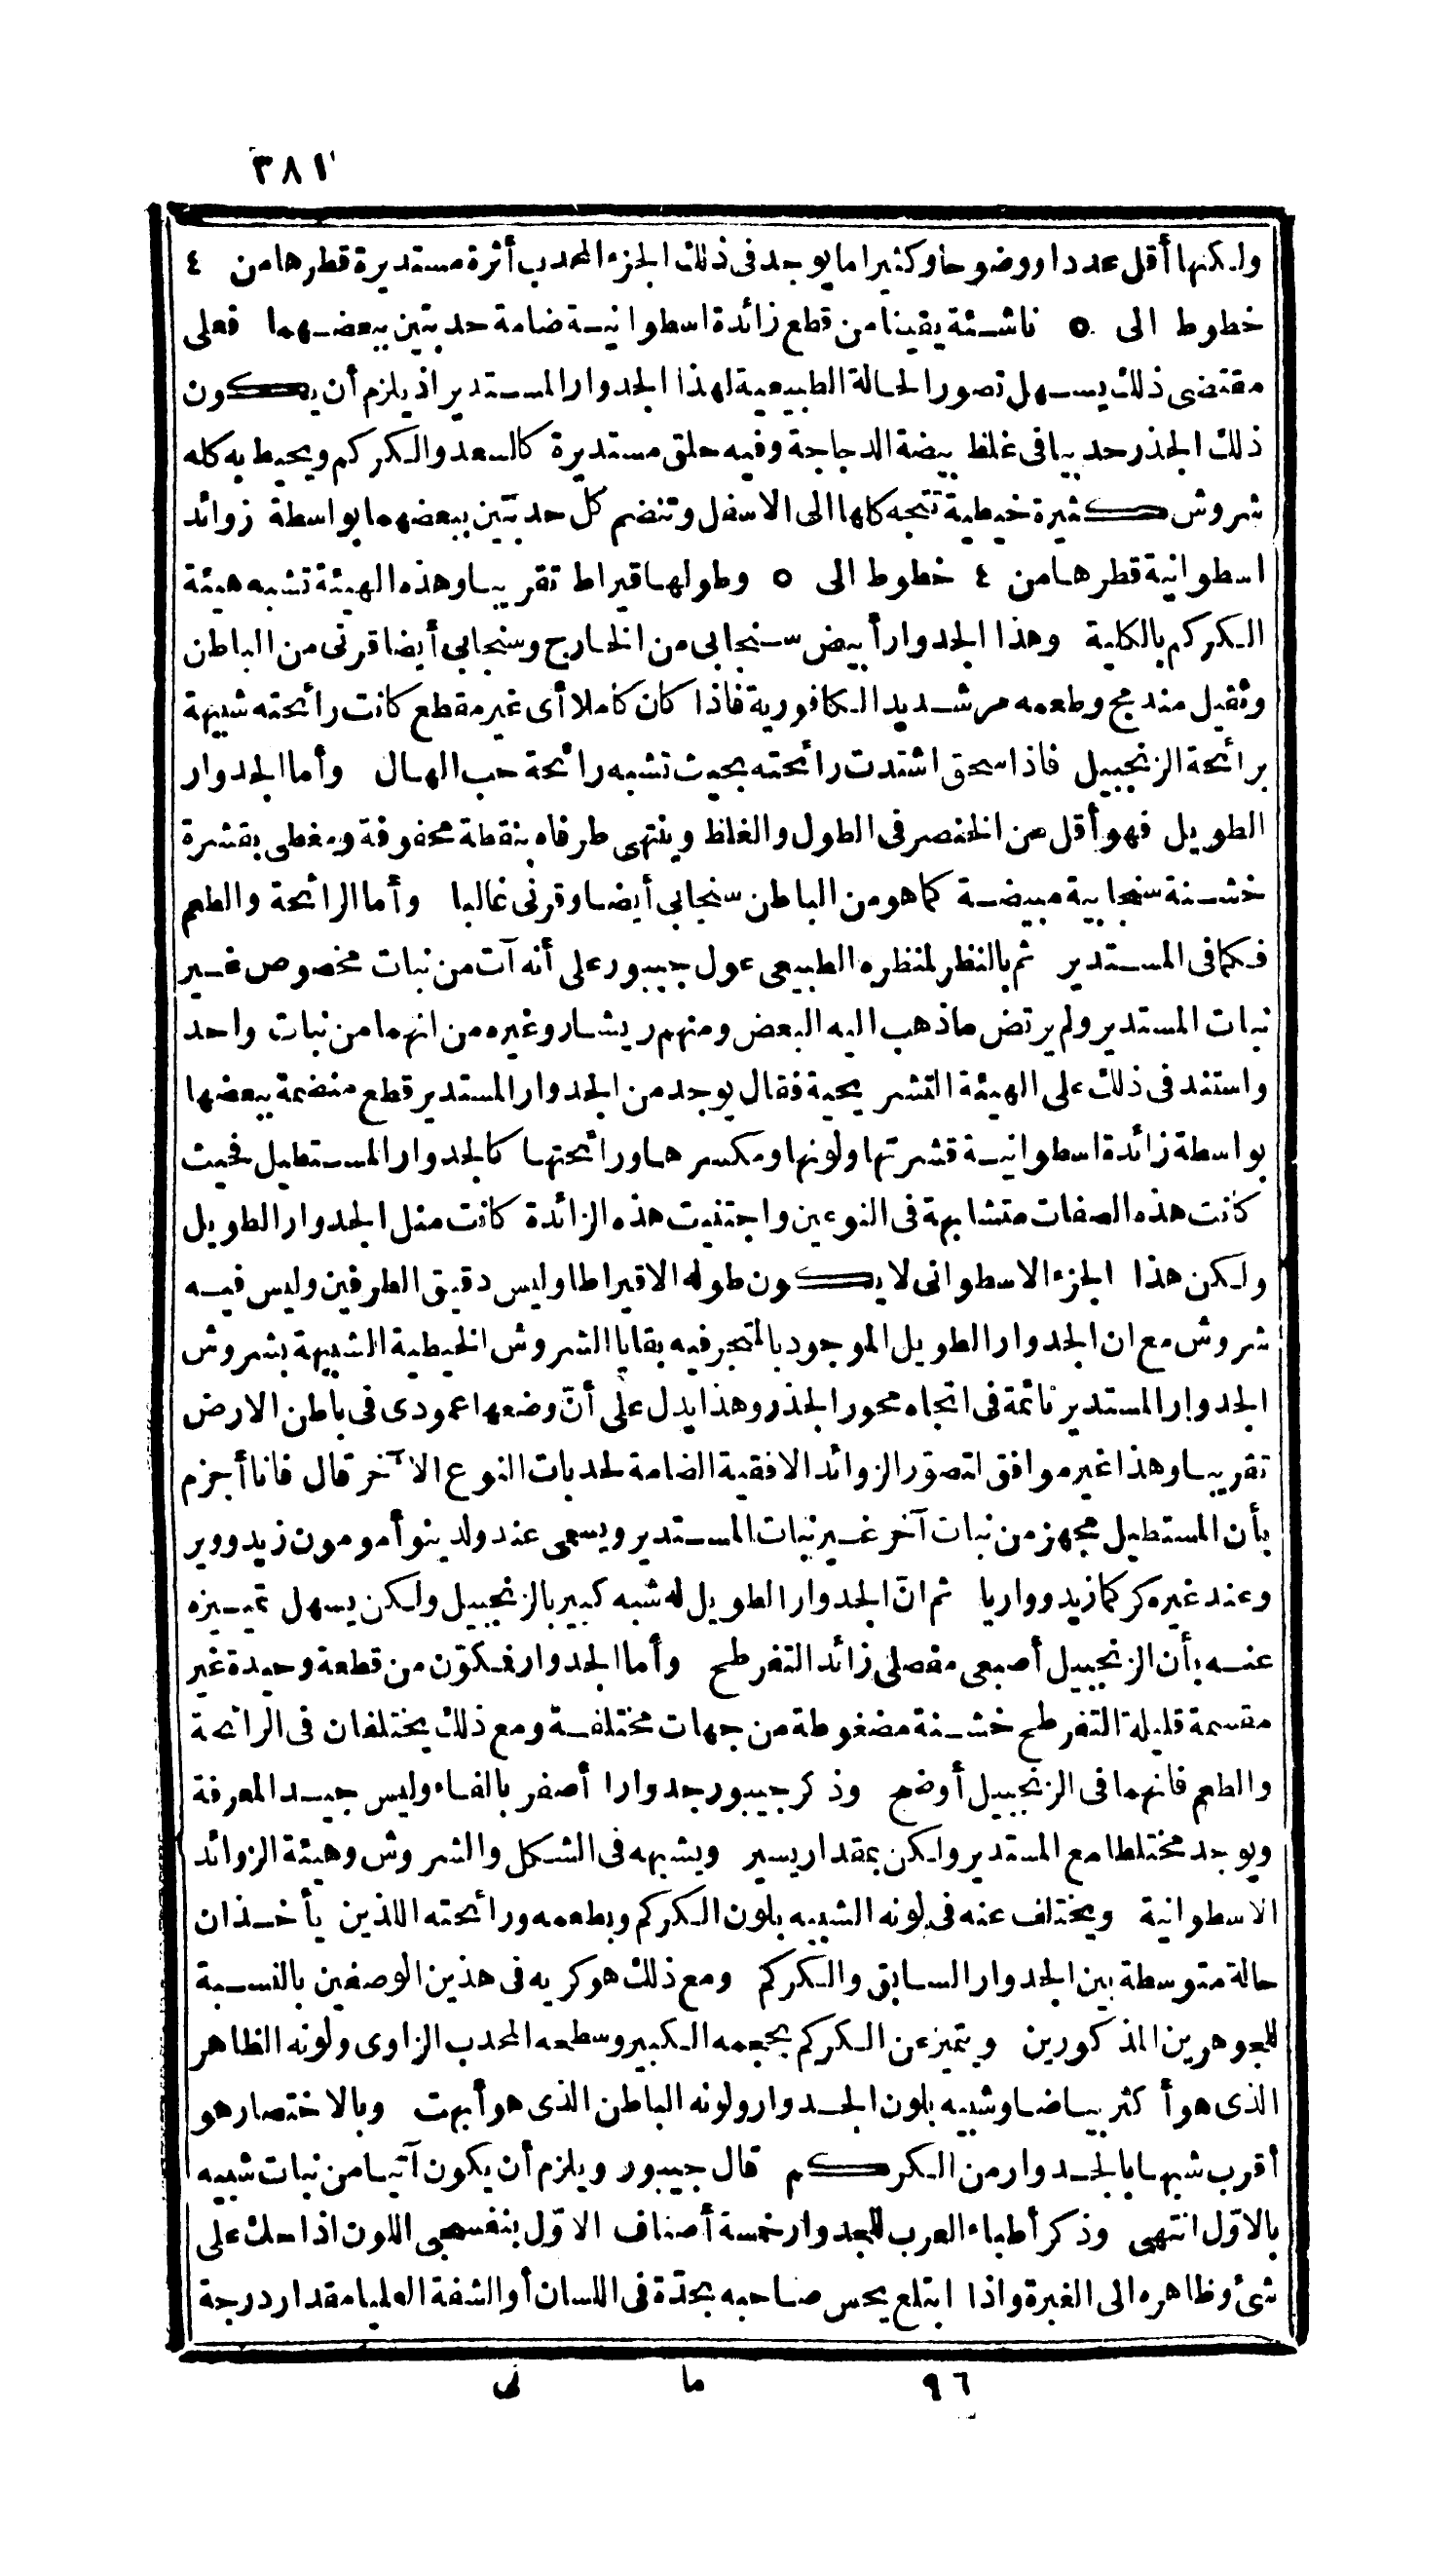 ٣٨١
ولكنها أقل عددا ووضوحا وكثيرا ما يوجد فى ذلك الجزء المحدب أثرة مستديرة قطرها من ٤
خطوط الى ٥ ناشئة يقينا من قطع زائدة اسطوانية ضامة حدبتين ببعضهما فعلى
مقتضى ذلك يسهل تصور الحالة الطبيعية لهذا الجدوار المستدير اذ يلزم أن يكون
ذلك الجذر حدبيا فى غلظ بيضة الدجاجة وفيه حلق مستديرة كالسعد والكركم ويحيط به كله
شروش كثيرة خيطية تتجه كلها الى الاسفل وتنضم كل حدبتين ببعضهما بواسطة زوائد
اسطوانية قطرها من ٤ خطوط الى ٥ وطولها قيراط تقريبا وهذه الهيئة تشبه هيئة
الكركم بالكلية وهذا الجدوار أبيض سنجابى من الخارج وسنجابى أيضا قرنى من الباطن
وثقيل مندمج وطعمه مر شديد الكافورية فاذا كان كاملا أى غير مقطع كانت رائحته شبيهة
برائحة الزنجبيل فاذا سحق اشتدت رائحته بحيث تشبه رائحة حب الهال وأما الجدوار
الطويل فهو أقل من الخنصر فى الطول والغلظ وينتهى طرفاه بنقطة محفوفة ومغطى بقشرة
خشنة سنجابية مبيضة كما هو من الباطن سنجابى أيضا وقرنى غالبا وأما الرائحة والطعم
فكما فى المستدير ثم بالنظر لمنظره الطبيعى عول جيبور على أنه آت من نبات مخصوص غير
نبات المستدير ولم يرتض ما ذهب اليه البعض ومنهم ريشار وغيره من انهما من نبات واحد
واستند فى ذلك على الهيئة التشريحية فقال يوجد من الجدوار المستدير قطع منضمة ببعضها
بواسطة زائدة اسطوانية قشرتها ولونها ومكسرها ورائحتها كالجدوار المستطيل فحيث
كانت هذه الصفات متشابهة فى النوعين واجتنيت هذه الزائدة كانت مثل الجدوار الطويل
ولكن هذا الجزء الاسطوانى لا يكون طوله الا قيراطا وليس دقيق الطرفين وليس فيه
شروش مع ان الجدوار الطويل الموجود بالمتجر فيه بقايا الشروش الخيطية الشبيهة بشروش
الجدوار المستدير نائمة فى اتجاه محور الجذر وهذا يدل على أنّ وضعها عمودى فى باطن الارض
تقريبا وهذا غير موافق لتصوّر الزوائد الافقية الضامة لحدبات النوع الآخر قال فانا أجزم
بأن المستطيل مجهز من نبات آخر غير نبات المستدير ويسمى عند ولدينو أمومون زيدووير
وعند غيره كركما زيدوواريا ثم انّ الجدوار الطويل له شبه كبير بالزنجبيل ولكن يسهل تمييزه
عنه بأن الزنجبيل أصبعى مفصلى زائد التفرطح وأما الجدوار فمكوّن من قطعة وحيدة غير
مقسمة قليلة التفرطح خشنة مضغوطة من جهات مختلفة ومع ذلك يختلفان فى الرائحة
والطعم فانهما فى الزنجبيل أوضح وذكر جيبور جدوارا أصفر بالفاء وليس جيد المعرفة
ويوجد مختلطا مع المستدير ولكن بمقدار يسير ويشبهه فى الشكل والشروش وهيئة الزوائد
الاسطوانية ويختلف عنه فى لونه الشبيه بلون الكركم وبطعمه ورائحته اللذين يأخذان
حالة متوسطة بين الجدوار السابق والكركم ومع ذلك هو كريه فى هذين الوصفين بالنسبة
للجوهرين المذكورين ويتميز عن الكركم بحجمه الكبير وسطحه المحدب الزاوى ولونه الظاهر
الذى هو أكثر بياضا وشبيه بلون الجدوار ولونه الباطن الذى هو أبهت وبالاختصار هو
أقرب شبها بالجدوار من الكركم قال جيبور ويلزم أن يكون آتيا من نبات شبيه
بالاوّل انتهى وذكر أطباء العرب للجدوار خمسة أصناف الاوّل بنفسجى اللون اذا حك على
شئ وظاهره الى الغبرة واذا ابتلع يحس صاحبه بحدّة فى اللسان أو الشفة العليا مقدار درجة
٩٦ ما نى